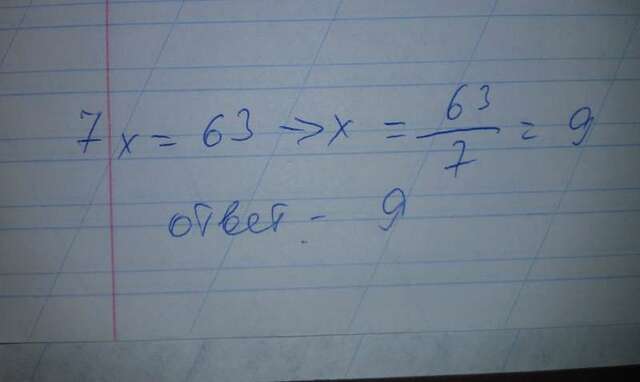 7x = 63 → x = 63/7 = 9
ответ - 9